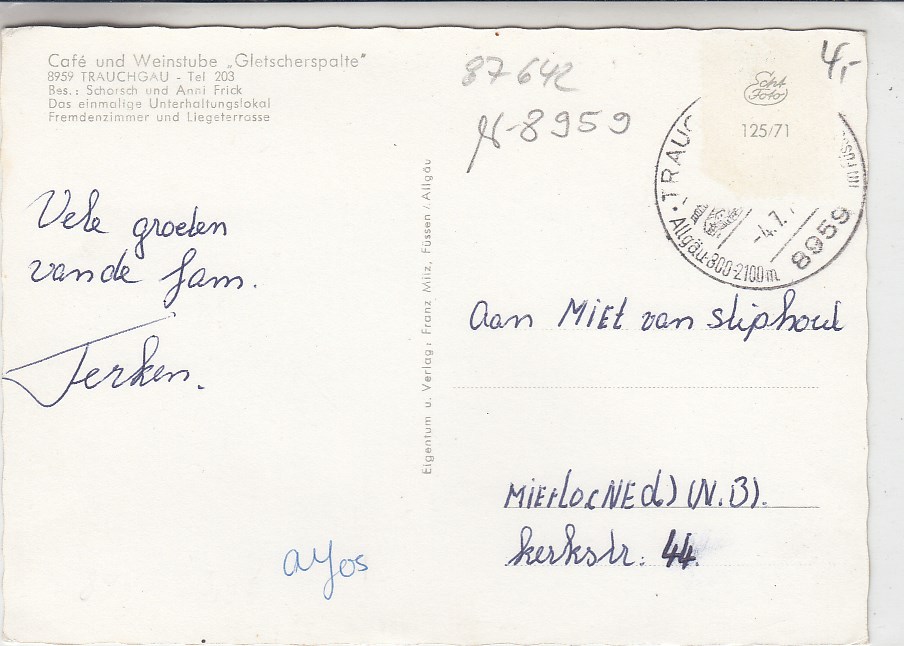 Café und Weinstube „Gletscherspalte"
8959 TRAUCHGAU - Tel 203
Bes.: Schorsch und Anni Frick
Das einmalige Unterhaltungslokal
Fremdenzimmer und Liegeterrasse
87642
8959
4,-
Schk
Foto
125/71
TRAUC
Allgäu·800-2100m
-4.7.
8959
Vele groeten
van de fam.
Jerken.
Eigentum u. Verlag: Franz Milz, Füssen/Allgäu
Aan MiEt van sliphout
MiERLO (NEd) (N.B).
kerkstr. 44.